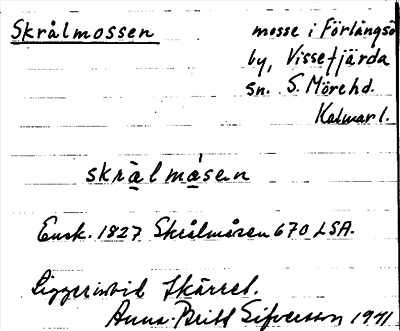 Skrålmossen mosse i Förlångsö
by, Vissefjärda
sn. S. Möre hd.
Kalmar l.
skràlmásen
Ensk. 1827 Skrålmåsen 670 LSA.
Ligger intill Skärret.
Anna-Britt Sifversson 1941